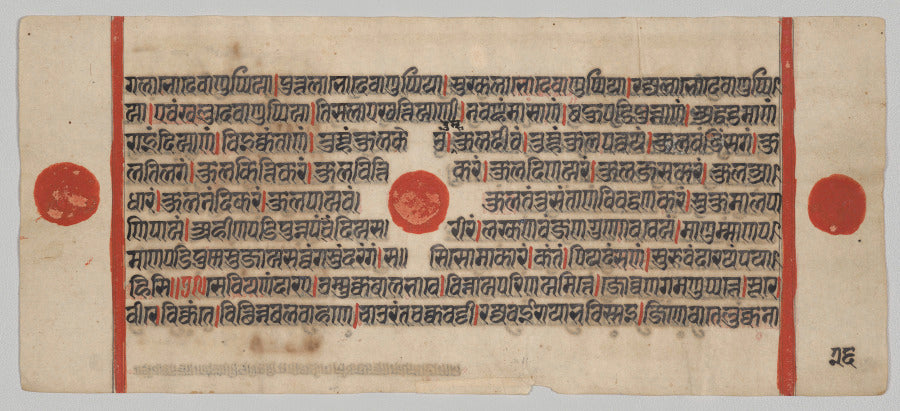 गलाभो देवाणुप्पिया । पुत्तलाभो देवाणुप्पिया । सुक्खलाभो देवाणुप्पिया । रज्जलाभो देवाणुप्पि
या । एवं खलु देवाणुप्पिया । तिसला खत्तियाणी । नवण्हं मासाणं । बहुपडिपुन्नाणं । अद्धट्ठमाणं
राइंदियाणं । विइक्कंताणं । तुम्हं कुलकेउं । कुलदीवं । तुम्हं कुलपव्वयं । कुलवडिंसगं । कु
लतिलगं । कुलकित्तिकरं । कुलवित्तिकरं । कुलदिणयरं । कुलजसकरं । कुलआ
धारं । कुलनंदिकरं । कुलपायवं । कुलतंतुसंताणविवद्धणकरं । सुकुमालपा
णिपायं । अहीणपडिपुन्नपंचेंदियसरीरं । लक्खणवंजणगुणोववेयं । माणुम्माणप
माणपडिपुन्नसुजायसव्वंगसुंदरंगं । ससिसोमाकारं । कंतं । पियदंसणं । सुरूवं दारयं पया
हिसि ॥ से वि य णं दारए । उम्मुक्कबालभावे । विन्नायपरिणयमित्ते । जोव्वणगमणुप्पत्ते । सूरे
वीरे । विक्कंते । विच्छिन्नबलवाहणे । चाउरंतचक्कवट्टी । रज्जवई राया भविस्सइ । जिणे वा तेलुक्कना